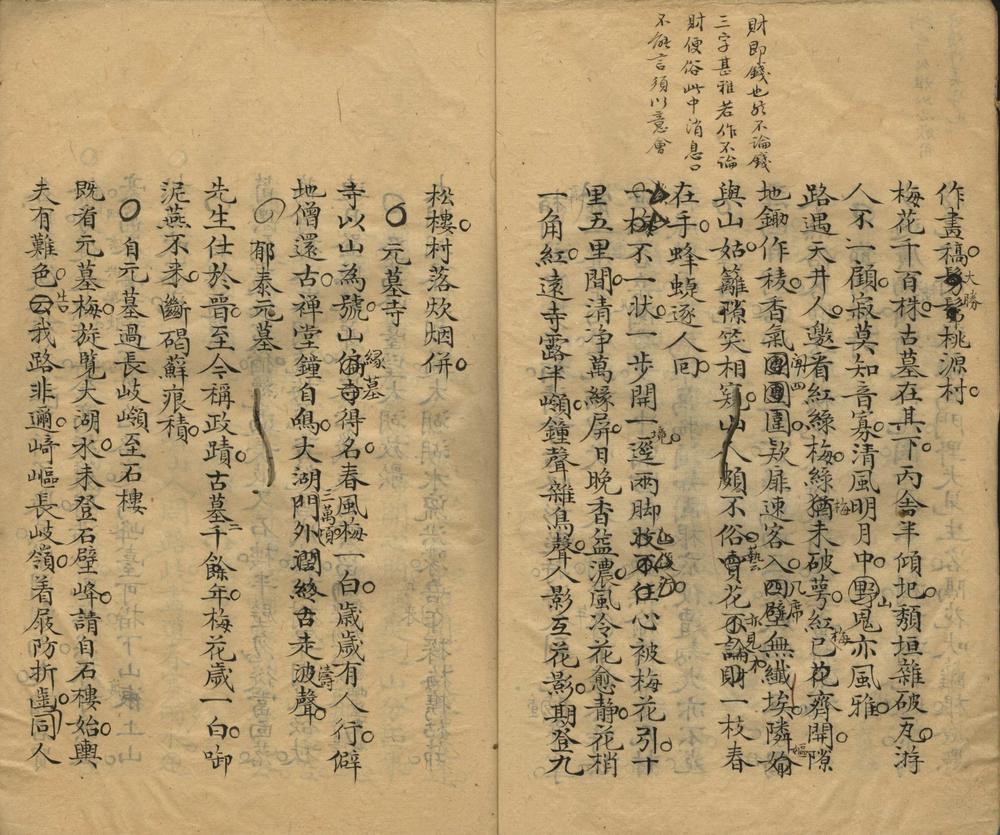 財即錢也然不論錢
三字甚雅若作不論
財便俗此中消息口
不能言須以意會
作畫稿大勝桃源村
梅花千百株古墓在其下丙舍半傾圮頹垣雜破瓦游
人不一顧寂莫知音寡清風明月中野山鬼亦風雅
路遇天井人邀看紅綠梅綠梅猶未破萼紅梅已花齊開隙
地鋤作稜香氣四圍欵扉速客入几席無纖埃隣嫗
與山姑籬隙笑相窺山人頗不俗賣藝花不論財一枝春
在手蜂蜨逐人回
一樹不一狀一步開一逕兩脚不往心被梅花引十
里五里間清淨萬緣屏日晚香益濃風冷花愈靜花梢
一角紅遠寺露半嶺鐘聲雜鳥聲人影互花影期登九
松樓村落炊烟併
元墓寺
寺以山為號山緣墓得名春風梅一白歲歲有人行僻
地僧還古禅堂鐘自鳴大湖門外濶三萬頃終古走波濤聲
郁泰元墓
先生仕於晋至今稱政蹟古墓二千餘年梅花歲一白啣
泥燕不來斷碣蘚痕積
自元墓過長岐嶺至石樓
既看元墓梅旋覧大湖水未登石壁峰請自石樓始輿
夫有難色告我路非邇崎嶇長岐嶺着屐防折齒同人